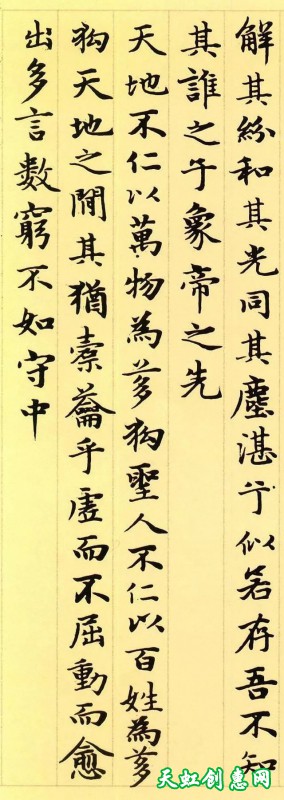 解其紛和其光同其塵湛兮似若存吾不知
其誰之子象帝之先
天地不仁以萬物為芻狗聖人不仁以百姓為芻
狗天地之間其猶橐籥乎虛而不屈動而愈
出多言數窮不如守中
天虹创惠网